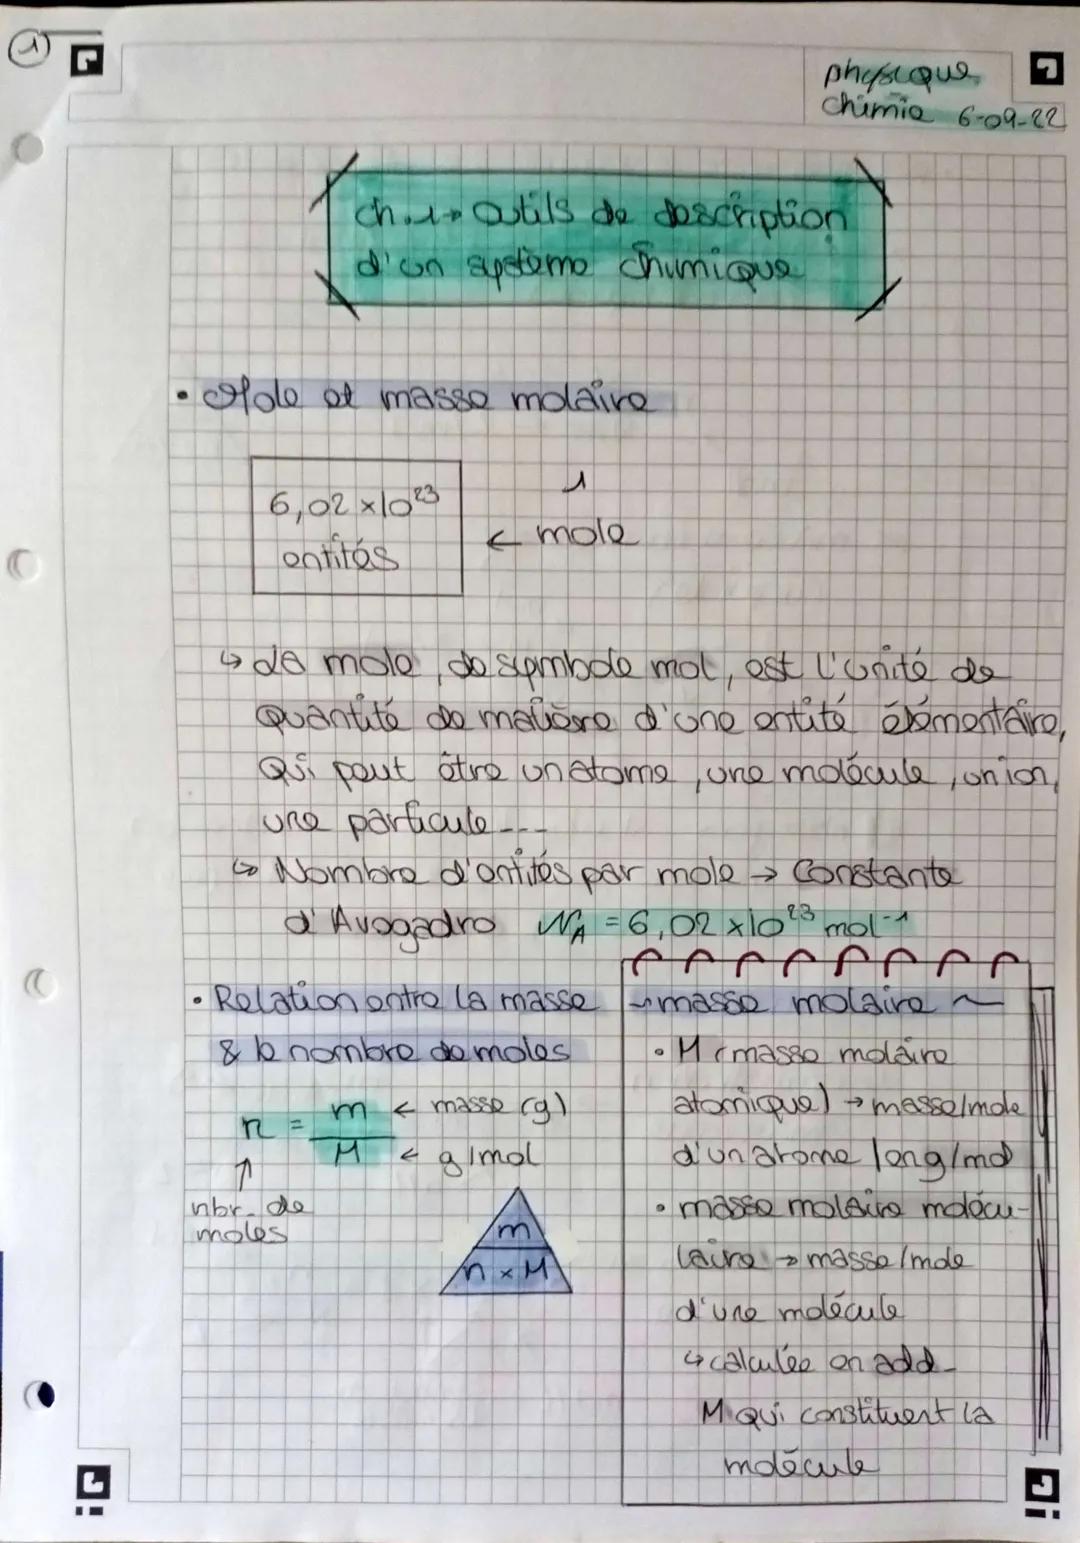 1
physique
chimie 6-09-22
ch.1→ Outils de description
d'un système chimique
• Mole et masse molaire
6,02 ×10²³
entités
← 1 mole
↳ La mole, de symbole mol, est l'unité de
quantité de matière d'une entité élémentaire,
qui peut être un atome, une molécule, un ion,
une particule...
↳ Nombre d'entités par mole → Constante
d'Avogadro NA = 6,02 ×10²³ mol⁻¹
• Relation entre la masse
& le nombre de moles
n = m / M
← masse (g)
← g/mol
↑
nbr. de
moles
m
n × M
~ masse molaire ~
• M (masse molaire
atomique) → masse/mole
d'un atome /en g/mol
• masse molaire molécu-
laire → masse/mole
d'une molécule
↳ calculée en add.
M qui constituent la
molécule